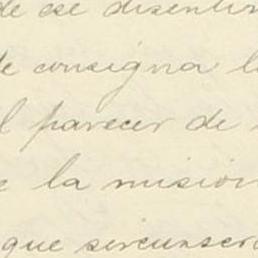 de ese disentir
de consigna l
l parecer de
e la mision
que sircunscri